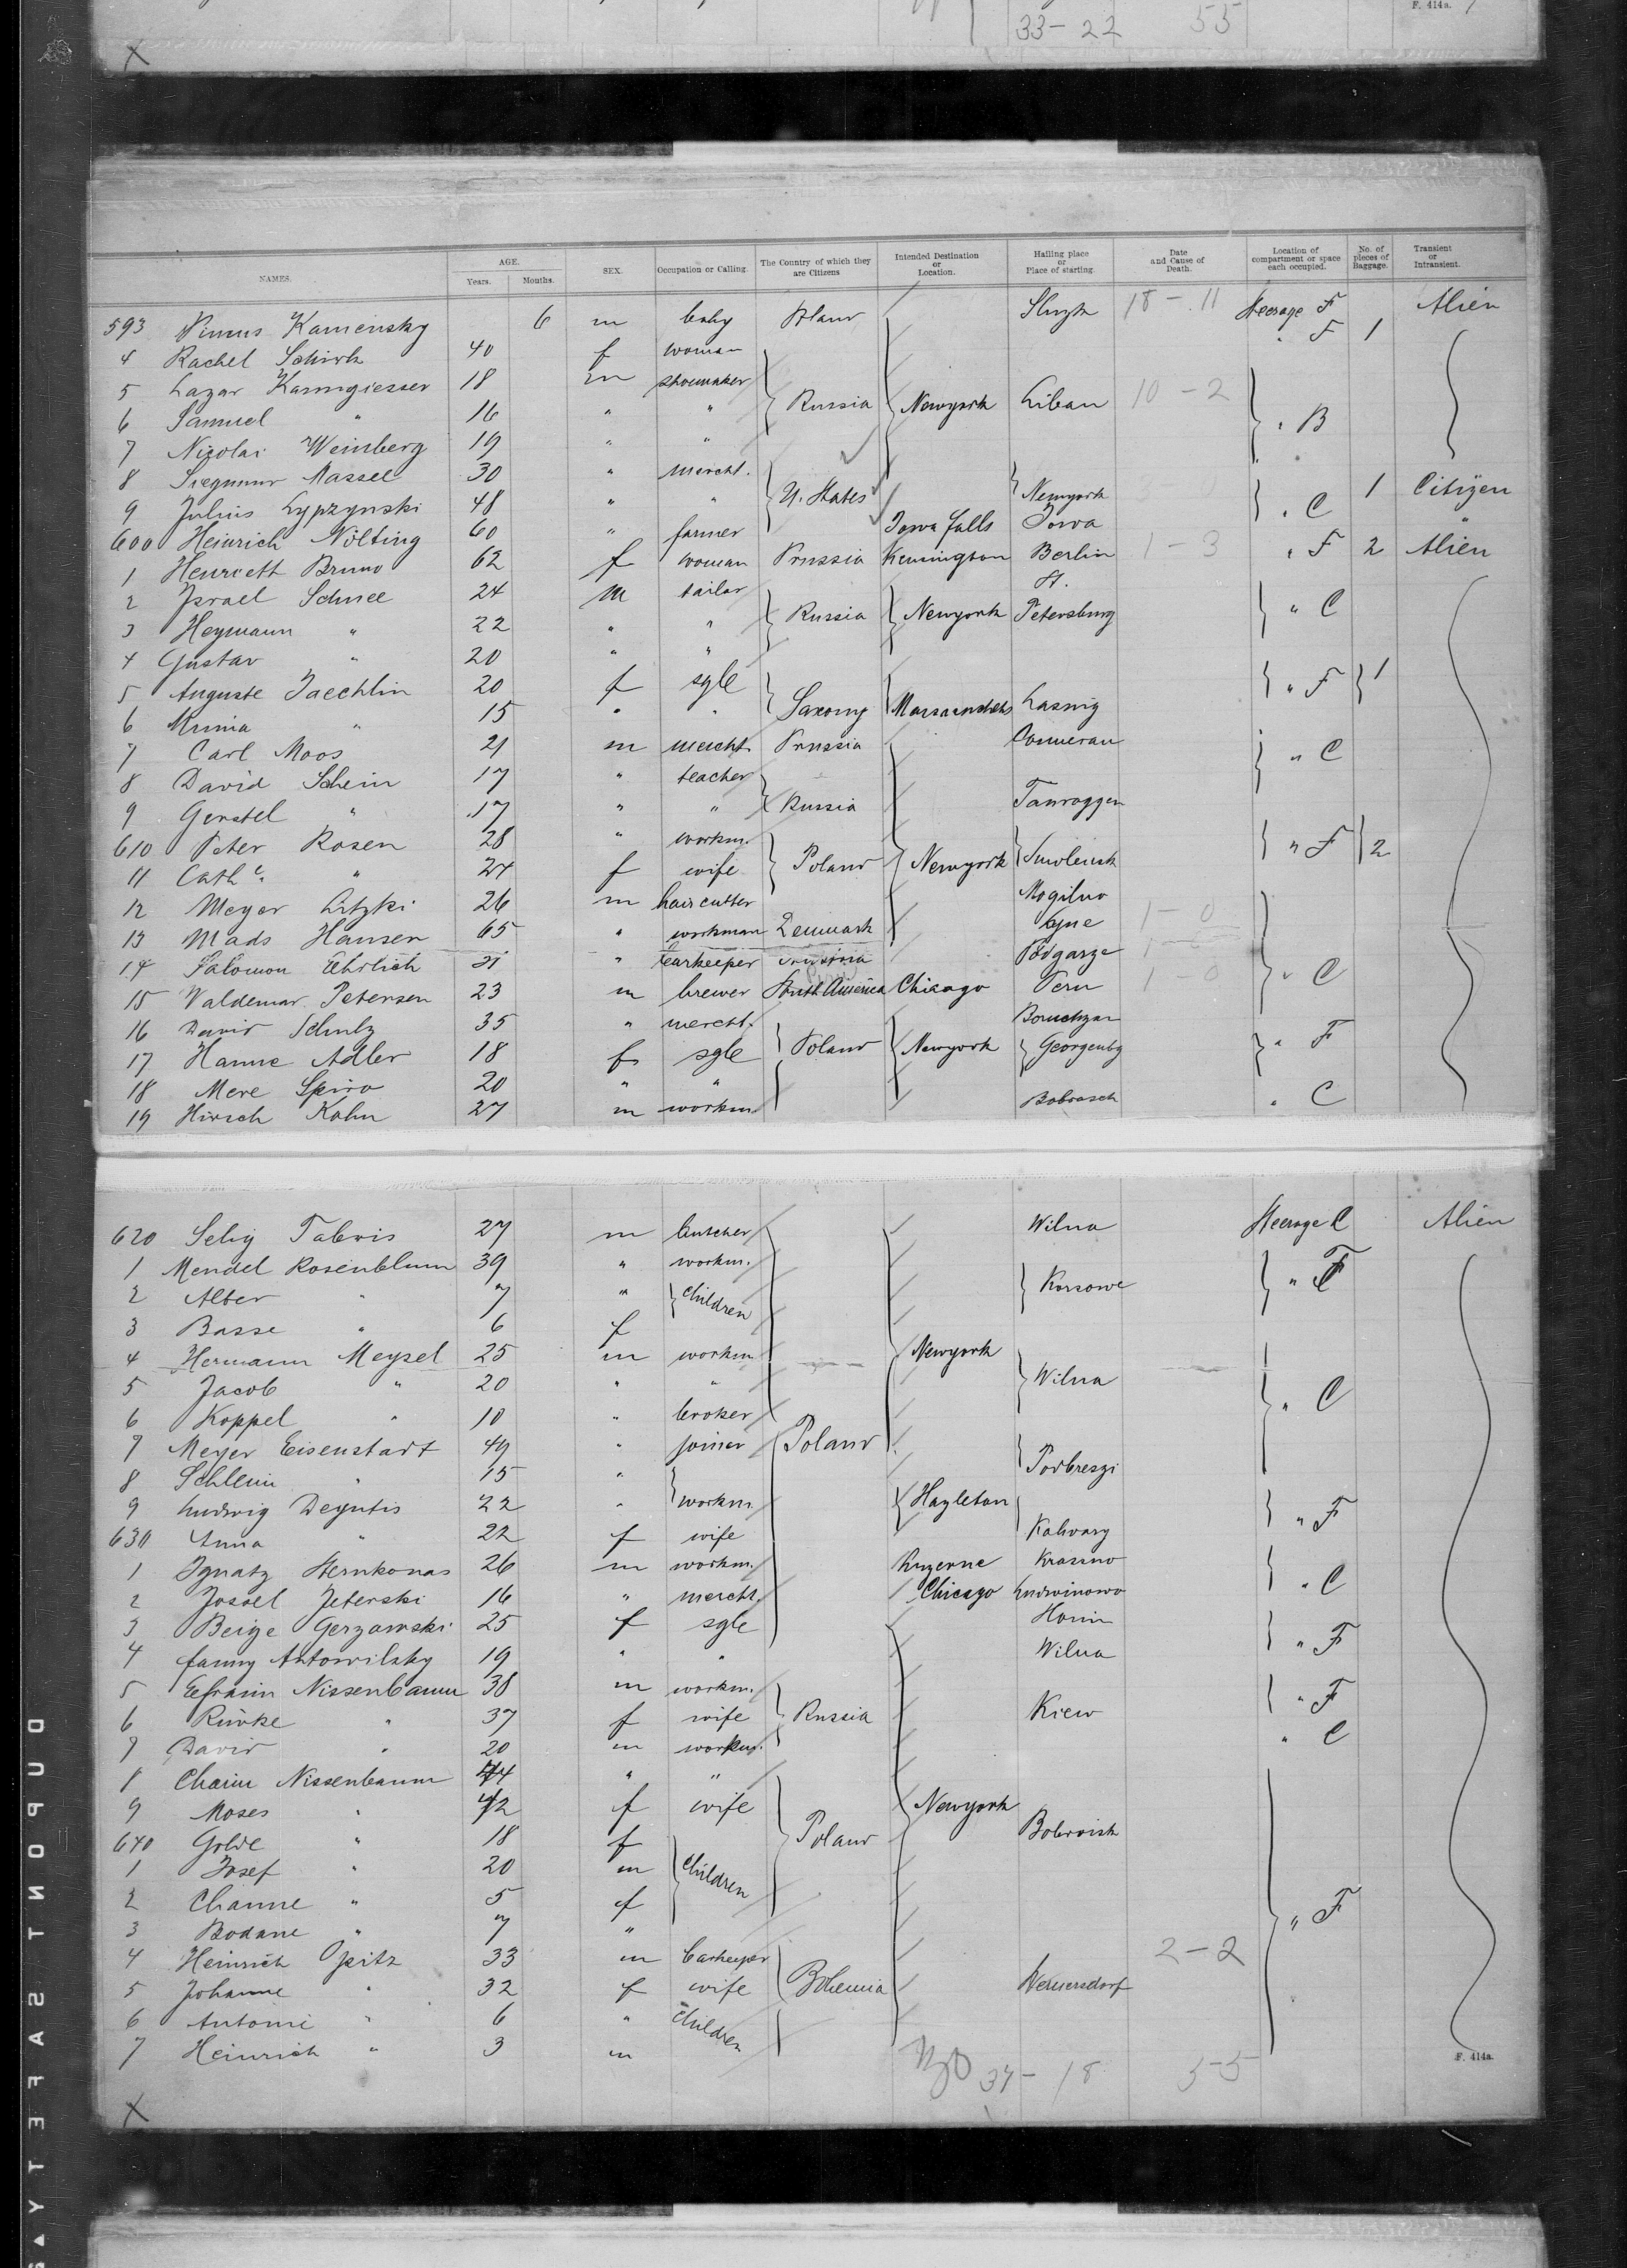 33 - 22 55 F. 414a.
X
NAMES. AGE. Years. Months. SEX. Occupation or Calling. The Country of which they are Citizens Intended Destination or Location. Hailing place or Place of starting. Date and Cause of Death. Location of compartment or space each occupied. No. of pieces of Baggage. Transient or Intransient.
593 Kamensky 6 m baby 18 - 11 Steerage F Alien
4 Rachel 40 f woman " F 1
5 Lazar Kanngiesser 18 m shoemaker
6 Samuel " 16 " " Russia Newyork Liban 10 - 2
7 Nicolai Weinberg 19 " " " B
8 Siegmund Massel 30 " mercht.
9 Julius Lyprzynski 48 " " U. States Newyork " C 1 Citizen
600 Heinrich Nölting 60 " farmer Iowa falls Iowa "
1 Henriett Bruno 62 f woman Prussia Kennington Berlin 1 - 3 " F 2 Alien
2 Israel Schnee 24 m tailor
3 Heymann " 22 " " Russia Newyork St. Petersburg " C
4 Gustav " 20 " "
5 Auguste Jaechlin 20 f sgle " F 1
6 " 15 " " Saxony
7 Carl Moos 21 m mercht. Prussia " C
8 David Schein 17 " teacher
9 Gerstel " 17 " " Russia Tauroggen
610 Peter Rosen 28 " workm. " F 2
11 Cathe. " 24 f wife Poland Newyork Smolensk
12 Meyer Litzki 26 m haircutter Mogilno
13 Mads Hansen 65 " workman Denmark 1 - 0
14 Salomon Ehrlich 21 " Podgarze
15 Valdemar Petersen 23 m brewer South America Chicago Peru 1 - 0 " C
16 David Schulz 35 " mercht.
17 Hanne Adler 18 f sgle Poland Newyork Georgenbg " F
18 Mere Spiro 20 " "
19 Hirsch Kahn 27 m workm. " C
620 Selig 27 m butcher Wilna Steerage C Alien
1 Mendel Rosenblum 39 " workm.
2 Alter " 7 " children Korsowe " F
3 Basse " 6 f
4 Hermann Meysel 25 m workm Newyork
5 Jacob " 20 " " Wilna
6 Koppel " 10 " broker " C
7 Meyer Eisenstadt 49 " joiner Poland
8 Schleim " 15 " Podbreszi
9 Ludwig Deyntis 22 " workm. Hazleton " F
630 Anna " 22 f wife Kalvary
1 Ignatz 26 m workm. Luzerne Krassno
2 Jossel Jeterski 16 " mercht. Chicago Ludwinowo " C
3 Beige Gerzowski 25 f sgle
4 fanny 19 " " Wilna " F
5 Efraim Nissenbaum 38 m workm.
6 Riwke " 37 f wife Russia Kiew " F
7 David " 20 m workm. " C
8 Chaim Nissenbaum 44 " "
9 Moses " 42 f wife Newyork
640 Golde " 18 f Poland
1 Josef " 20 m children
2 Channe " 5 f " F
3 Bodane " 7 "
4 Heinrich Opitz 33 m 2 - 2
5 Johanne " 32 f wife Bohemia
6 Antonie " 6 " children
7 Heinrich " 3 m
37 - 18 55 F. 414a.
X
DUPONT SAFETY